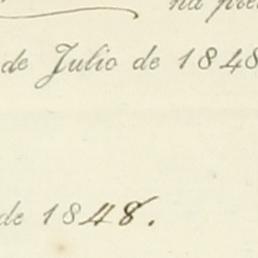 na
de Julio de 1848
de 1848.